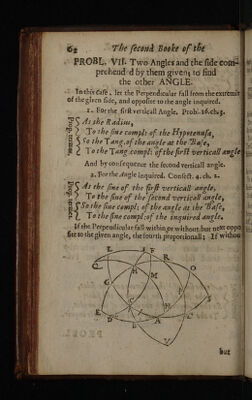 62 The second Booke of the
PROBL. VII. Two Angles and the side com-
prehended by them given; to find
the other ANGLE.
In this case, let the Perpendicular fall from the extremit
of the given side, and opposite to the angle inquired.
1. For the first verticall Angle. Probl. 16. ch. 3.
As the Radius,
To the sine compl: of the Hypotenusa,
So the Tang. of the angle at the Base,
To the Tang. compl: of the first verticall angle
And by consequence the second verticall angle.
2. For the Angle inquired. Consect. 4. ch. 2.
As the sine of the first verticall angle,
To the sine of the second verticall angle,
So the sine compl: of the angle at the Base,
To the sine compl: of the inquired angle.
If the Perpendicular fall within or without but next oppo
site to the given angle, the fourth proportionall; If withou
but